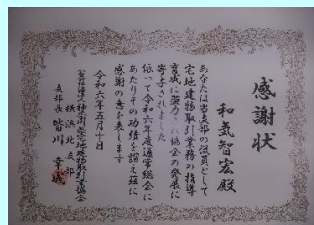 感謝状
和気智宏殿
あなたは当支部の役員として
宅地建物取引業務の指導
育成に協力され協会の発展に
寄与されました
依って令和六年度通常総会に
あたりその功績を讃え茲に
感謝の意を表します
令和六年五月十日
公益社団法人神奈川県宅地建物取引業協会
横浜北支部
支部長 皆川